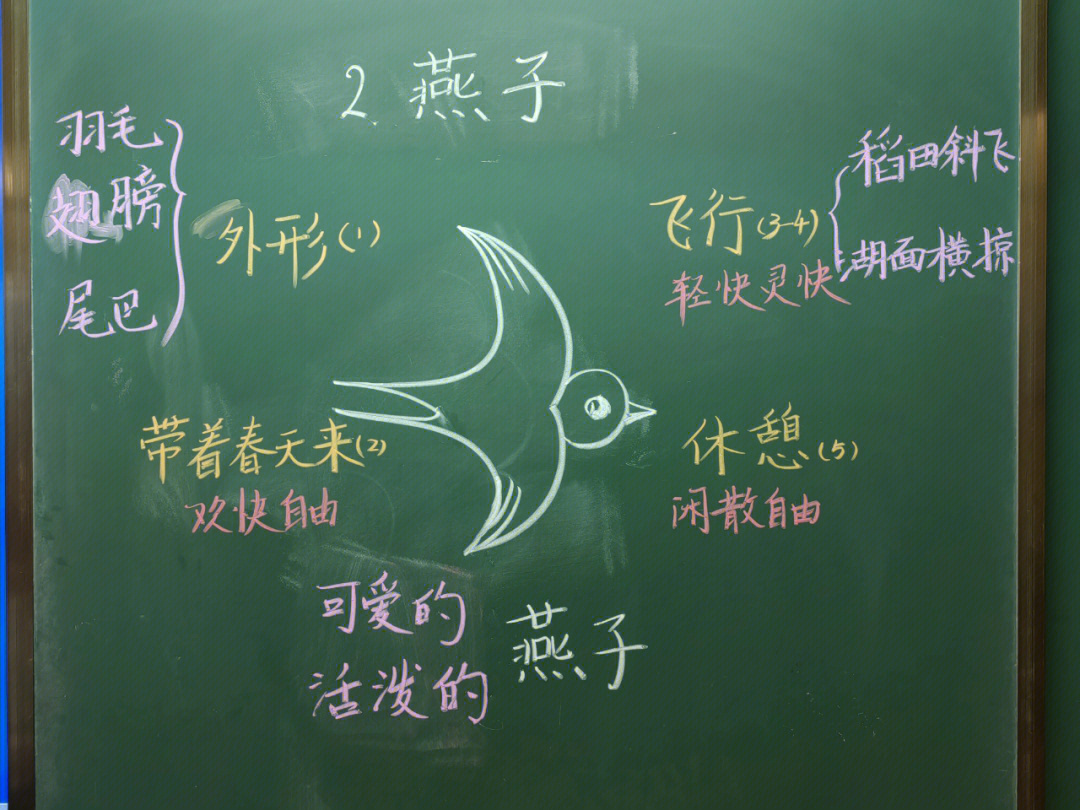 2. 燕子
羽毛
翅膀
尾巴
外形(1)
飞行(3-4)
轻快灵快
稻田斜飞
湖面横掠
带着春天来(2)
欢快自由
休憩(5)
闲散自由
可爱的
活泼的
燕子